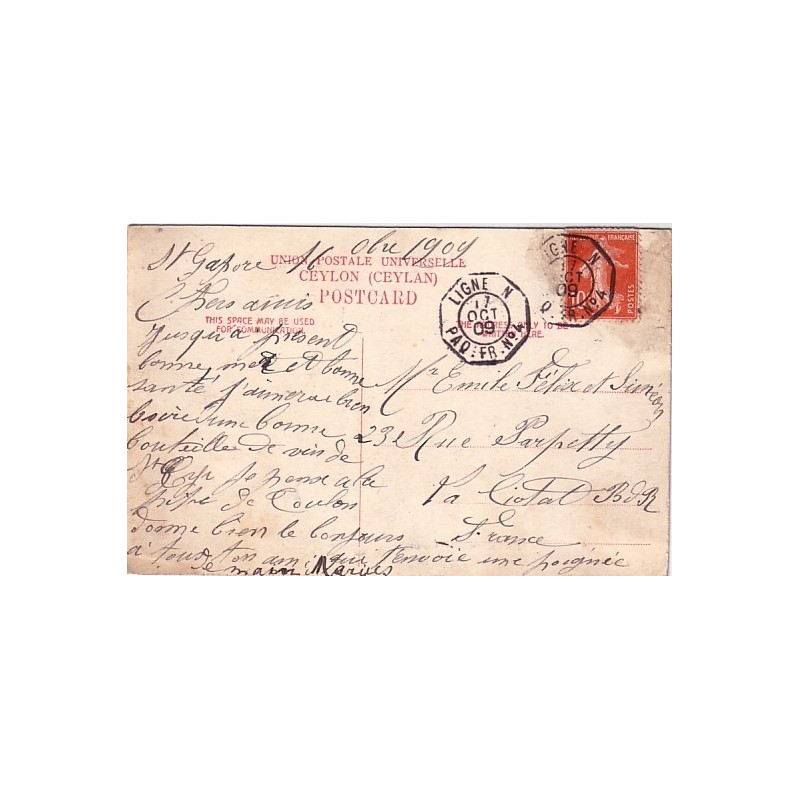 St Gapore 16 Obre 1909
UNION POSTALE UNIVERSELLE
CEYLON (CEYLAN)
POSTCARD
THIS SPACE MAY BE USED
FOR COMMUNICATION.
THE ADDRESS ONLY TO BE
LIGNE N
17
OCT
09
PAQ. FR. No 4
LIGNE N
17
OCT
09
Q. FR. No 4
FRANÇAISE
POSTES
10
Chers amis
Jusqu'a présent
bonne mer et bonne
santé j'aimerai bien
boire une bonne
bouteille de vin de
St Je pense a la
pipe de Toulon
donne bien le bonjours
à tous ton ami qui t'envoie une poignée
de main Marius
Mr Emile Félix et Siméon
23 Rue Parpetty
La Ciotat BdR
France